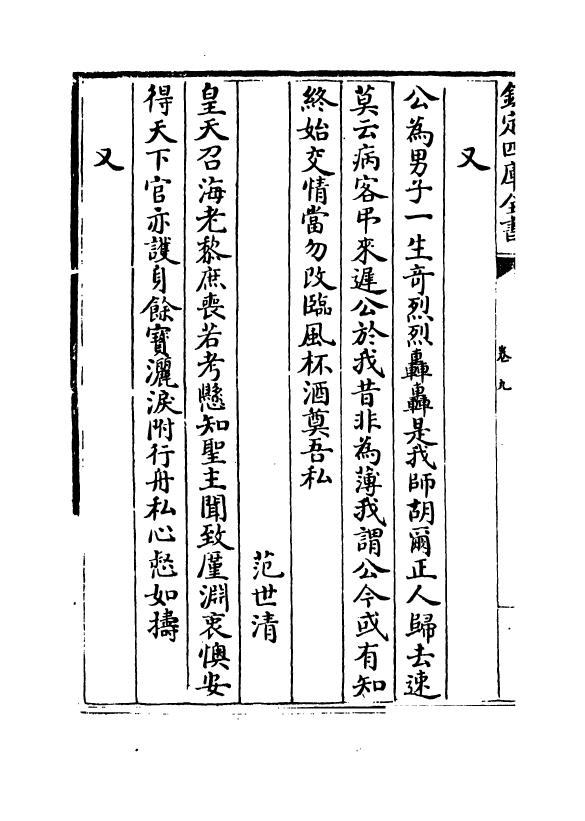 欽定四庫全書
卷九
又
公為男子一生竒烈烈轟轟是我師胡爾正人歸去速
莫云病客弔來遲公於我昔非為薄我謂公今或有知
終始交情當勿改臨風杯酒奠吾私
范世清
皇天召海老黎庶喪若考懸知聖主聞致廑淵衷懊安
得天下官亦護身餘寶灑淚附行舟私心惄如擣
又